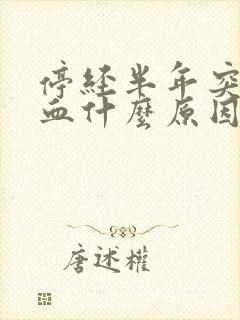 停經半年突
血什麼原因
唐述權